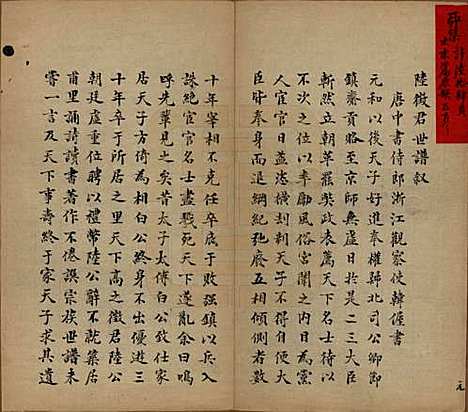 陸徵君世譜叙
唐中書侍郎浙江觀察使韓偓書
元和以後天子好進奉權歸北司公卿節
鎮齋貢賂至京師無虛日於是二三大臣
斬然立朝革罷獘政表薦天下名士待以
不次之位以率勵風俗宮闈之内日為黨
人宦官日益恣橫刦制天子不得自便大
臣皆奉身而退綱紀弛廢互相傾側者數
十年宰相不克任卒底于敗强鎮以兵入
誅絕宦官名士盡戮死天下遂亂余曰嗚
呼先輩見之矣昔太子太傅白公致仕家
居天子方倚為相白公終身不出優遊三
十年卒于所居之里天下高之徵君陸公
朝廷虛重位聘以禮幣陸公辭不就築居
甫里誦詩讀書著作不倦譔宗族世譜未
嘗一言及天下事壽終于家天子求其遺